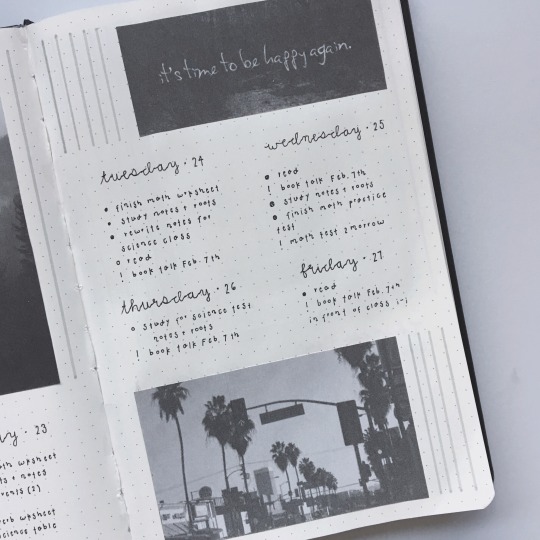 it's time to be happy again.
tuesday · 24
• finish math wrksheet
• study notes + roots
• rewrite notes for
science class
o read
! book talk Feb. 7th
wednesday · 25
• read
! book talk Feb. 7th
• study notes + roots
• finish math practice
test
! math test 2morrow
thursday · 26
o study for science test
notes + roots
! book talk Feb. 7th
friday · 27
• read
! book talk Feb. 7th
in front of class i-i
y · 23
wrksheet
+ notes
(2)
wrksheet
science table